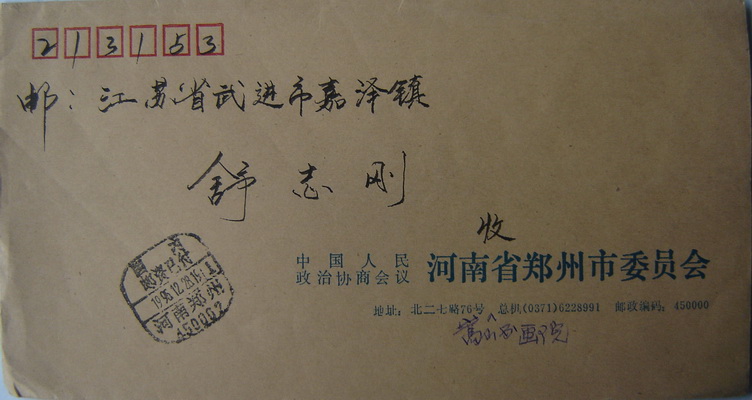 213153
邮：江苏省武进市嘉泽镇
舒志刚
收
中国人民政治协商会议 河南省郑州市委员会
地址：北二七路76号 总机(0371)6228991 邮政编码：450000
嵩山书画院
国内
邮资已付
1996.12.28.16
河南郑州
450002